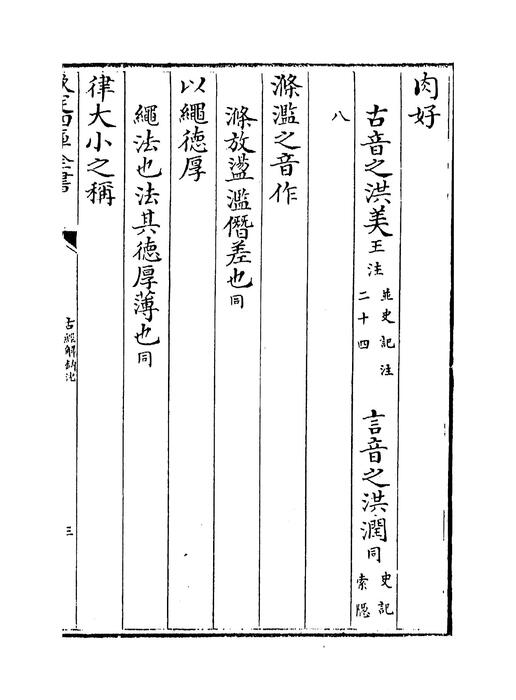 肉好
古音之洪美王注並史記注二十四 言音之洪潤同史記索隠
八
滌濫之音作
滌放盪濫僭差也同
以繩徳厚
繩法也法其徳厚薄也同
律大小之稱
欽定四庫全書
古經解鈎沈
三